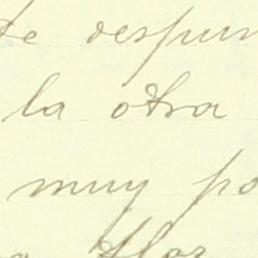 te despun
la otra
muy po
a flor